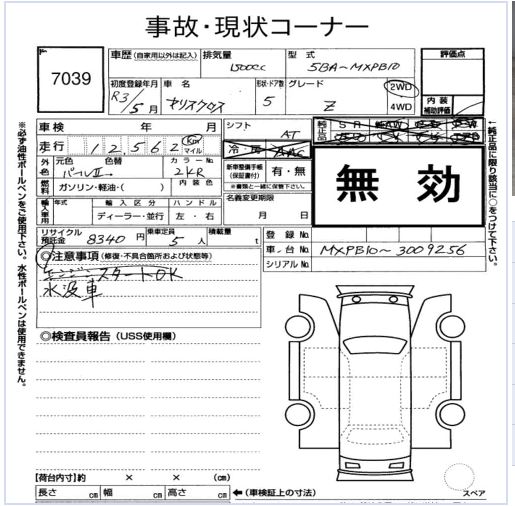 事故・現状コーナー
7039
車歴(自家用以外は記入) 排気量 型式 評価点
1500cc 5BA~MXPB10
初度登録年月 車名 形状・ドア数 グレード 2WD
R3/5月 ヤリスクロス 5 Z 4WD
内装補助評価
車検 年 月 シフト AT
純正品
走行 12,562 Km マイル
外色 元色 色替 カラーNo. 新車整備手帳(保証書付) 有・無
パールII 2KR ※書類と一緒に保管下さい。
燃料 ガソリン・軽油・( ) 内装色 名義変更期限
無効
輸入車用 年式 輸入区分 ハンドル 月 日
ディーラー・並行 左・右
リサイクル預託金 8340円 乗車定員 5人 積載量 t
登録No.
車台No. MXPB10~3009256
シリアルNo.
◎注意事項(修復・不具合箇所および状態等)
エンジンスタートOK
水没車
◎検査員報告(USS使用欄)
【荷台内寸】約 × × (cm)
長さ cm 幅 cm 高さ cm ←(車検証上の寸法)
スペア
※必ず油性ボールペンをご使用下さい。水性ボールペンは使用できません。
←純正品に限り該当に○をつけて下さい。